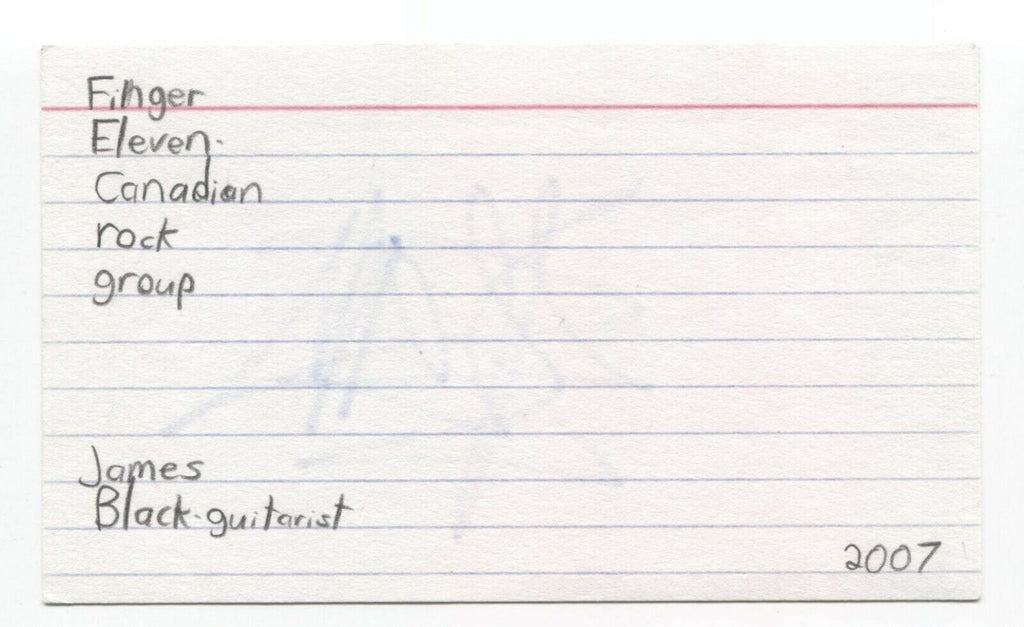 Finger
Eleven.
Canadian
rock
group
James
Black-guitarist
2007